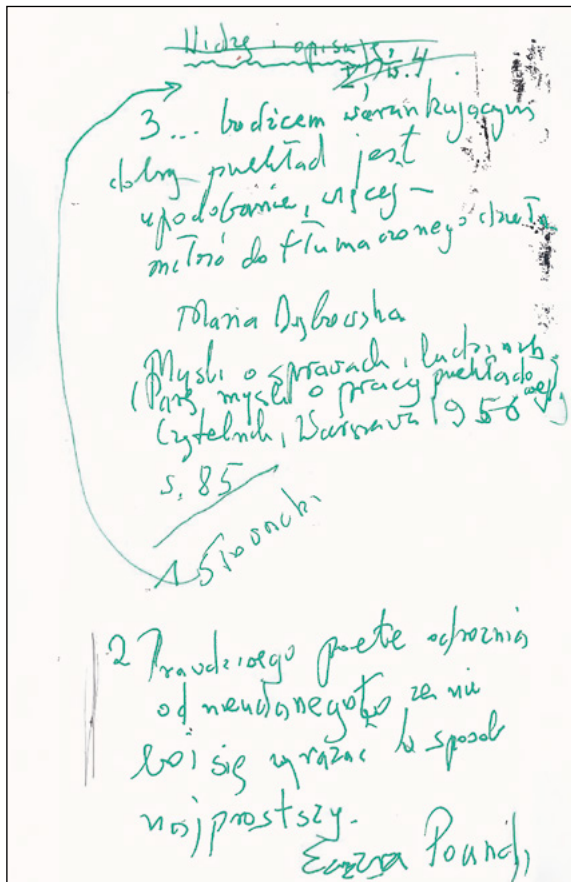 Widzę i opisa
3... bodźcem warunkującym
dobry przekład jest
upodobanie, więcej –
miłość do tłumaczonego dzieła
Maria Dąbrowska
Myśli o sprawach i ludziach
(Parę myśli o pracy przekładowej)
Czytelnik, Warszawa 1956
s. 85
1 Słowacki
2 Prawdziwego poetę odróżnia
od nieudanego to że nie
boi się wyrażać w sposób
najprostszy.
Ezra Pound